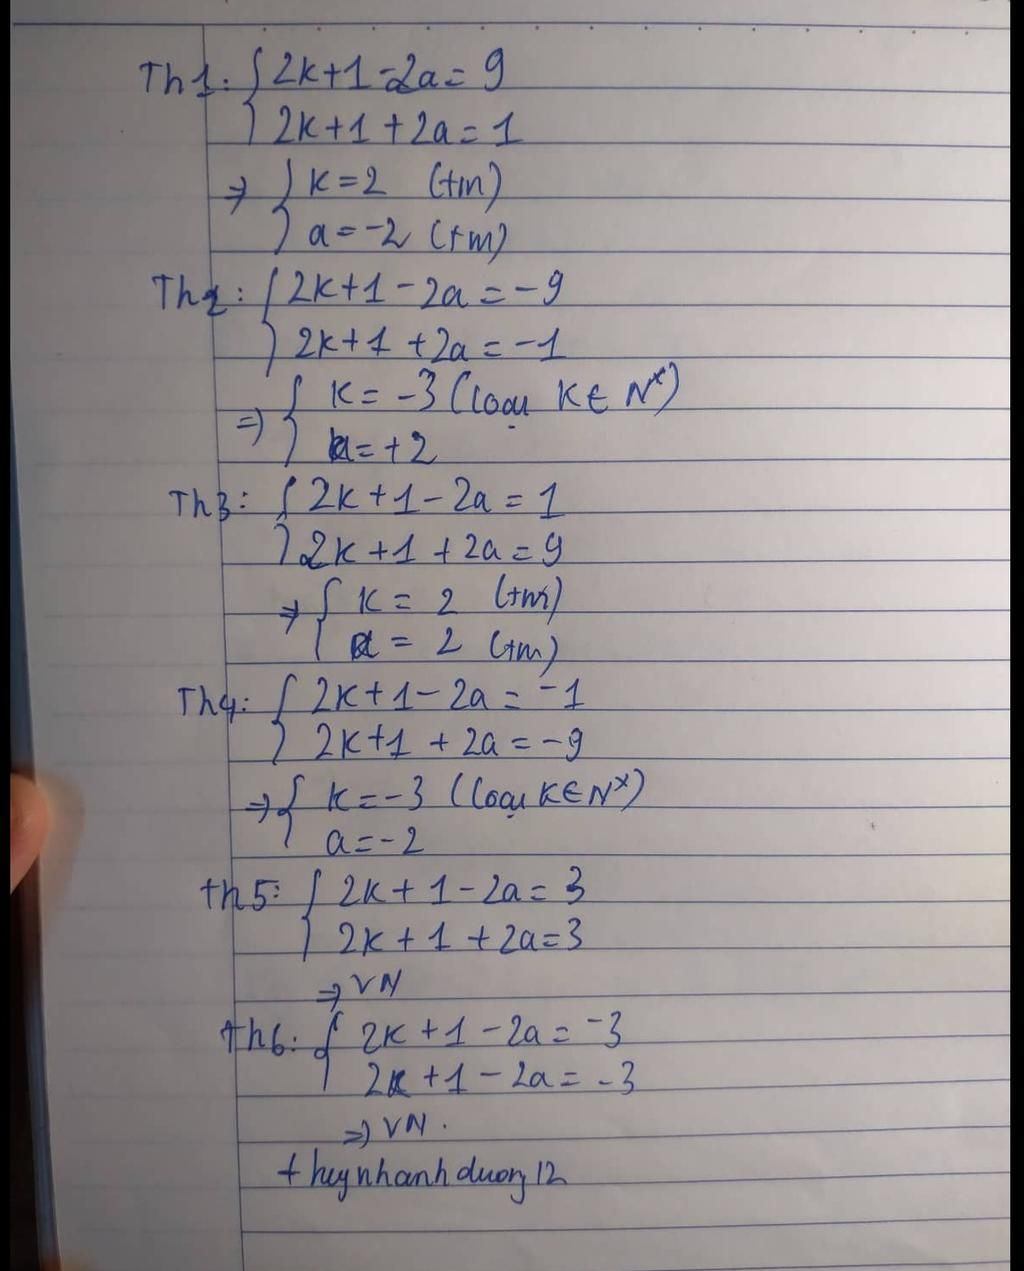 Th1: { 2k+1-2a = 9
2k+1+2a = 1
⇒ { k=2 (tm)
a=-2 (tm)
Th2: { 2k+1-2a = -9
2k+1+2a = -1
⇒ { k = -3 (loại k∈N*)
a = +2
Th3: { 2k+1-2a = 1
2k+1+2a = 9
⇒ { k = 2 (tm)
a = 2 (tm)
Th4: { 2k+1-2a = -1
2k+1+2a = -9
⇒ { k=-3 (loại k∈N*)
a=-2
th5: { 2k+1-2a = 3
2k+1+2a=3
⇒ VN
th6: { 2k+1-2a = -3
2k+1-2a = -3
⇒ VN.
thuynhanhduong12